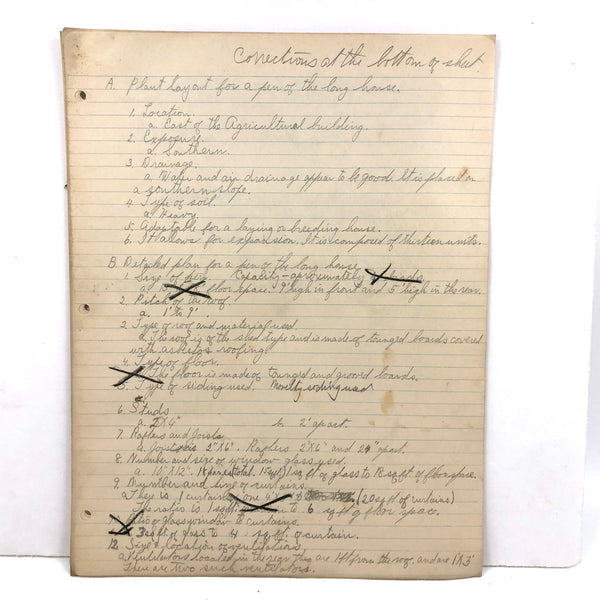 Corrections at the bottom of sheet.
A. Plant layout for a pen of the long house.
1. Location.
a. East of the Agricultural building.
2. Exposure.
a. Southern.
3. Drainage.
a. Water and air drainage appear to be good. It is placed on
a southern slope.
4. Type of soil.
a. Heavy.
5. Adaptable for a laying or breeding house.
6. It allows for expansion. It is composed of thirteen units.
B. Detailed plan for a pen of the long house.
1. Size of pen. Capacity - aproximately
a. floor space. 9' high in front and 5' high in the rear.
2. Pitch of the roof.
a. 1' to 9'.
3. Type of roof and material used.
a. The roof is of the shed type and is made of tounged boards covered
with asbestos roofing.
4. Type of floor.
The floor is made of tounged and grooved boards.
5. Type of siding used. Novelty siding used
6. Studs
a. 2"X4" b. 2' apart.
7. Rafters and Joists.
a. Joists is 2"X6". Rafters 2"X6" and 24" apart.
8. Number and size of window glass used.
a. 10"X12". 18 panes total. 1 sq ft of glass to 18 sq. ft of floor space.
9. Number and size of curtains.
a. They is 1 curtain, one (20 sq ft of curtains)
ratio is 1 sq ft to 6 sq ft of floor space.
Ratio of glass window to curtains.
3 sq ft of glass to 4 sq. ft. of curtain.
12. Size & location of ventilators.
a. Ventilators located in the rear they are 4ft from the roof, and are 1X3'
There are two such ventilators.